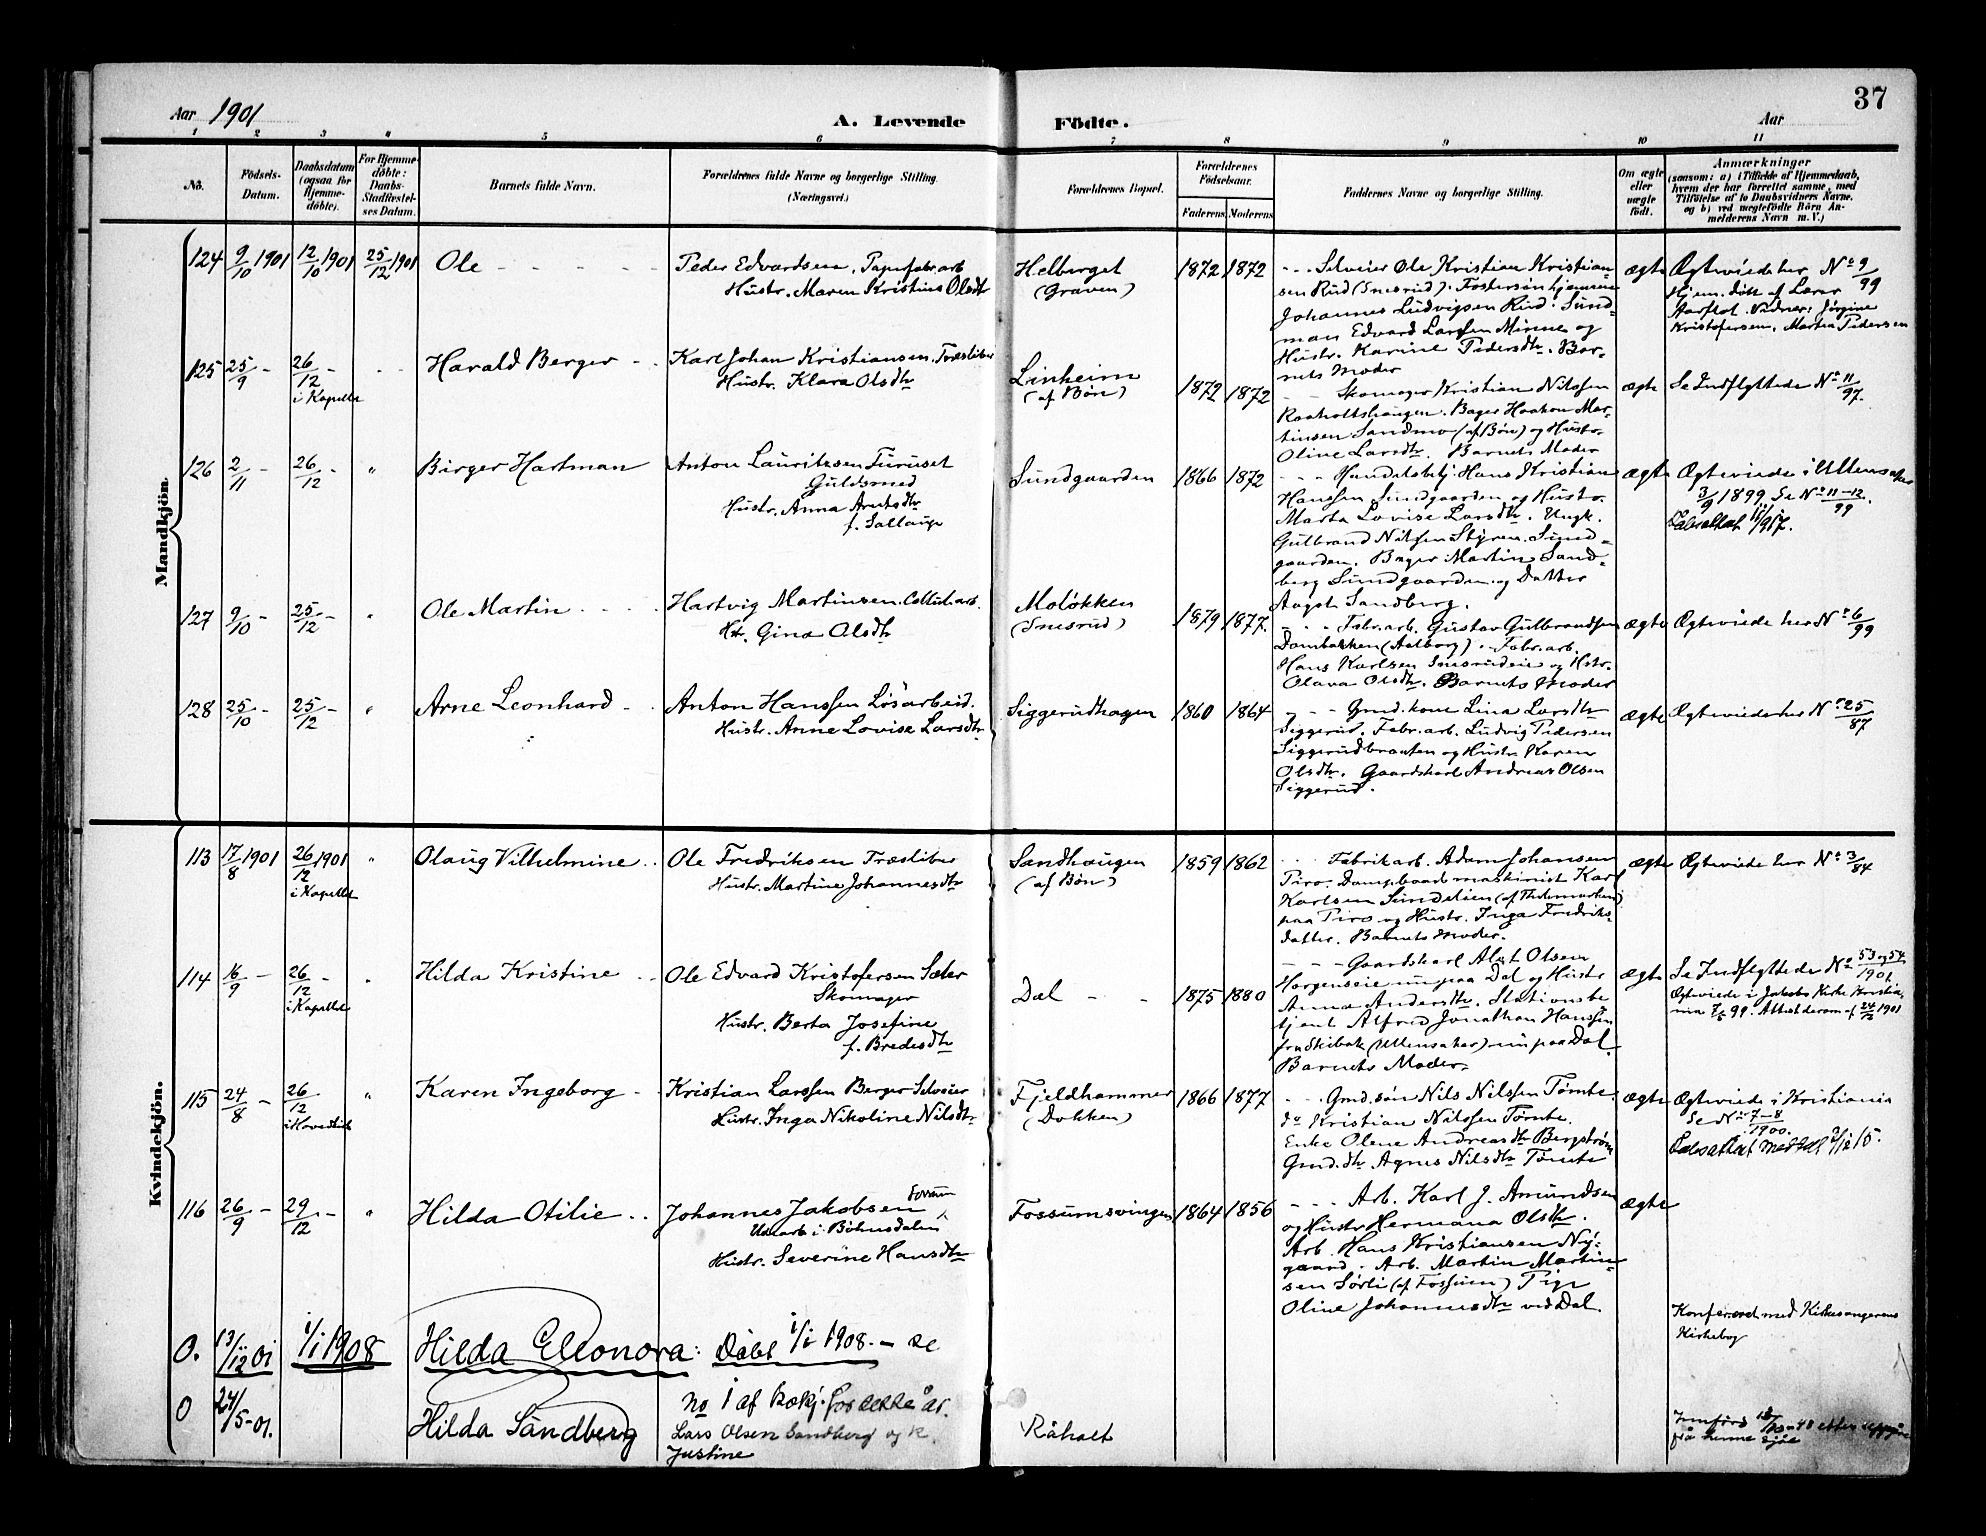 37
Aar 1901
A. Levende Födte.
Aar
1 2 3 4 5 6 7 8 9 10 11
No.
Födsels-Datum.
Daabsdatum (ogsaa for Hjemme-döbte).
For Hjemme-döbte: Daabs-Stadfæstel-ses Datum.
Barnets fulde Navn.
Forældrenes fulde Navne og borgerlige Stilling. (Næringsvei.)
Forældrenes Bopæl.
Forældrenes Födselsaar.
Faderens Moderens
Faddernes Navne og borgerlige Stilling.
Om ægte eller uægte födt.
Anmærkninger
(saasom: a) i Tilfælde af Hjemmedaab, hvem der har forrettet samme, med Tilföielse af to Daabsvidners Navne, og b) ved uægtefödte Börn An-melderens Navn m. V.)
Mandkjön.
124 9/10 1901 12/10 1901 25/12 1901 Ole
Peder Edvardsen, Papirfabr.arb.
Hustr. Maren Kristine Olsdtr
Helberget
(Graven)
1872 1872
Selveier Ole Kristian Kristian-
sen Rud (Snesrud). Fostersøn hjemme
Johannes Ludvigsen Rud. Sund-
man Edvard Larssen Minne og
Hustr. Karine Pedersdtr. Bar-
nets Moder
ægte
Ægteviede her No 9/99
Hjem. døbt af Lærer
Aarflot. Vidner: Jørgine
Kristofersen, Marthea Pedersen
125 25/9 - 26/12 - i Kapellet
Harald Berger
Karl Johan Kristiansen. Træsliber
Hustr. Klara Olsdtr
Linheim
(af Bøn)
1872 1872
Skomager Kristian Nilssen
Raaholtshaugen. Bager Haakon Mar-
tinsen Sandmo (af Bøn) og Hustr.
Oline Larsdtr. Barnets Moder
ægte
Se Indflyttede No 11/97.
126 2/11 - 26/12 - "
Birger Hartman
Anton Lauritzsen Furuset
Guldsmed
Hustr. Anna Arntsdtr
f. Sallaup
Sundgaarden
1866 1872
Handelsbtj. Hans Kristian
Hanssen Sundgaarden og Hustr.
Marta Lovise Larsdtr. Ungk.
Gulbrand Nilssen Styren. Sund-
gaarden. Bager Martin Sand-
berg Sundgaarden og Datter
Aagot Sandberg.
ægte
Ægteviede i Ullensaker
3/9 1899 Se No 11-12/99.
127 9/10 - 25/12 - "
Ole Martin
Hartvig Martinsen. Cellul.arb.
Hstr. Gina Olsdtr
Moløkken
(Snesrud)
1879 1877.
Fabr.arb. Gustav Gulbrandsen
Dambakken (Aalborg). Fabr.arb.
Hans Karlsen Snesrudeie og Hstr.
Olava Olsdtr. Barnets Moder
ægte
Ægteviede her No 6/99
128 25/10 - 25/12 - "
Arne Leonhard
Anton Hanssen Løsarbeid.
Hustr. Anne Lovise Larsdtr
Siggerudhagen
1860 1864
Gmd. kone Lina Larsdtr
Siggerud. Fabr.arb. Ludvig Pedersen
Siggerudbraaten og Hustr. Karen
Olsdtr. Gaardskarl Andreas Olsen
Siggerud.
ægte
Ægteviede her No 25/87
Kvindekjön.
113 17/8 1901 26/12 1901 i Kapellet "
Olaug Vilhelmine
Ole Fredriksen Træsliber
Hustr. Martine Johannesdtr
Sandhaugen
(af Bøn)
1859 1862
Fabrikarb. Adam Johansen
Piro. Dampbaadmaskinist Karl
Karlsen Sundelien (af Thelemarken)
paa Piro og Hustr. Inga Fredriks-
datter. Barnets Moder.
ægte
Ægteviede her No 3/84
114 16/9 - 26/12 - i Kapellet "
Hilda Kristine
Ole Edvard Kristofersen Sæter
Skomager
Hustr. Berta Josefine
f. Bredesdtr
Dal
1875 1880
Gaardskarl Alet Olsen
Horgenseie nu paa Dal og Hustr
Anna Andersdtr. Stationsbe
tjent Alfred Jonathan Hanssen
fra Skibak (Ullensaker) nu paa Dal.
Barnets Moder.
ægte
Se Indflyttede No 53 og 54/1901.
Ægteviede i Jakobs Kirke Kristia-
nia 7/6 99. Attest derom af 24/12 1901
115 24/8 - 26/12 i Hovedkirk "
Karen Ingeborg
Kristian Larssen Berger Selveier
Hustr. Inga Nikoline Nilsdtr
Fjeldhammer
(Dokken)
1866 1877
Gmd.søn Nils Nilssen Tømte.
do Kristian Nilssen Tømte.
Enke Olene Andreasdtr Bergstrøm
Gmd.dtr Agnes Nilsdtr Tømte
ægte
Ægteviede i Kristiania
Se No 7-8/1900.
116 26/9 - 29/12 - "
Hilda Otilie
Johannes Jakobsen Fossum
Udearb i Bøhnsdalen
Hustr. Severine Hansdtr
Fossumsvingen
1864 1856
Arb. Karl J. Amundsen
og Hustr Hermana Olsdtr.
Arb. Hans Kristiansen Ny-
gaard. Arb. Martin Martin-
sen Sørli (af Fossum) Pige
Oline Johannesdtr ved Dal.
ægte
0. 13/12 01 1/1 1908 Hilda Eleonora: Døbt 1/1 1908. - se
no 1 af for dette år.
Konfereret med Kirkesangerens
Kirkebog
0 24/5-01. Hilda Sandberg
Lars Olsen Sandberg og h.
Justine
Råholt